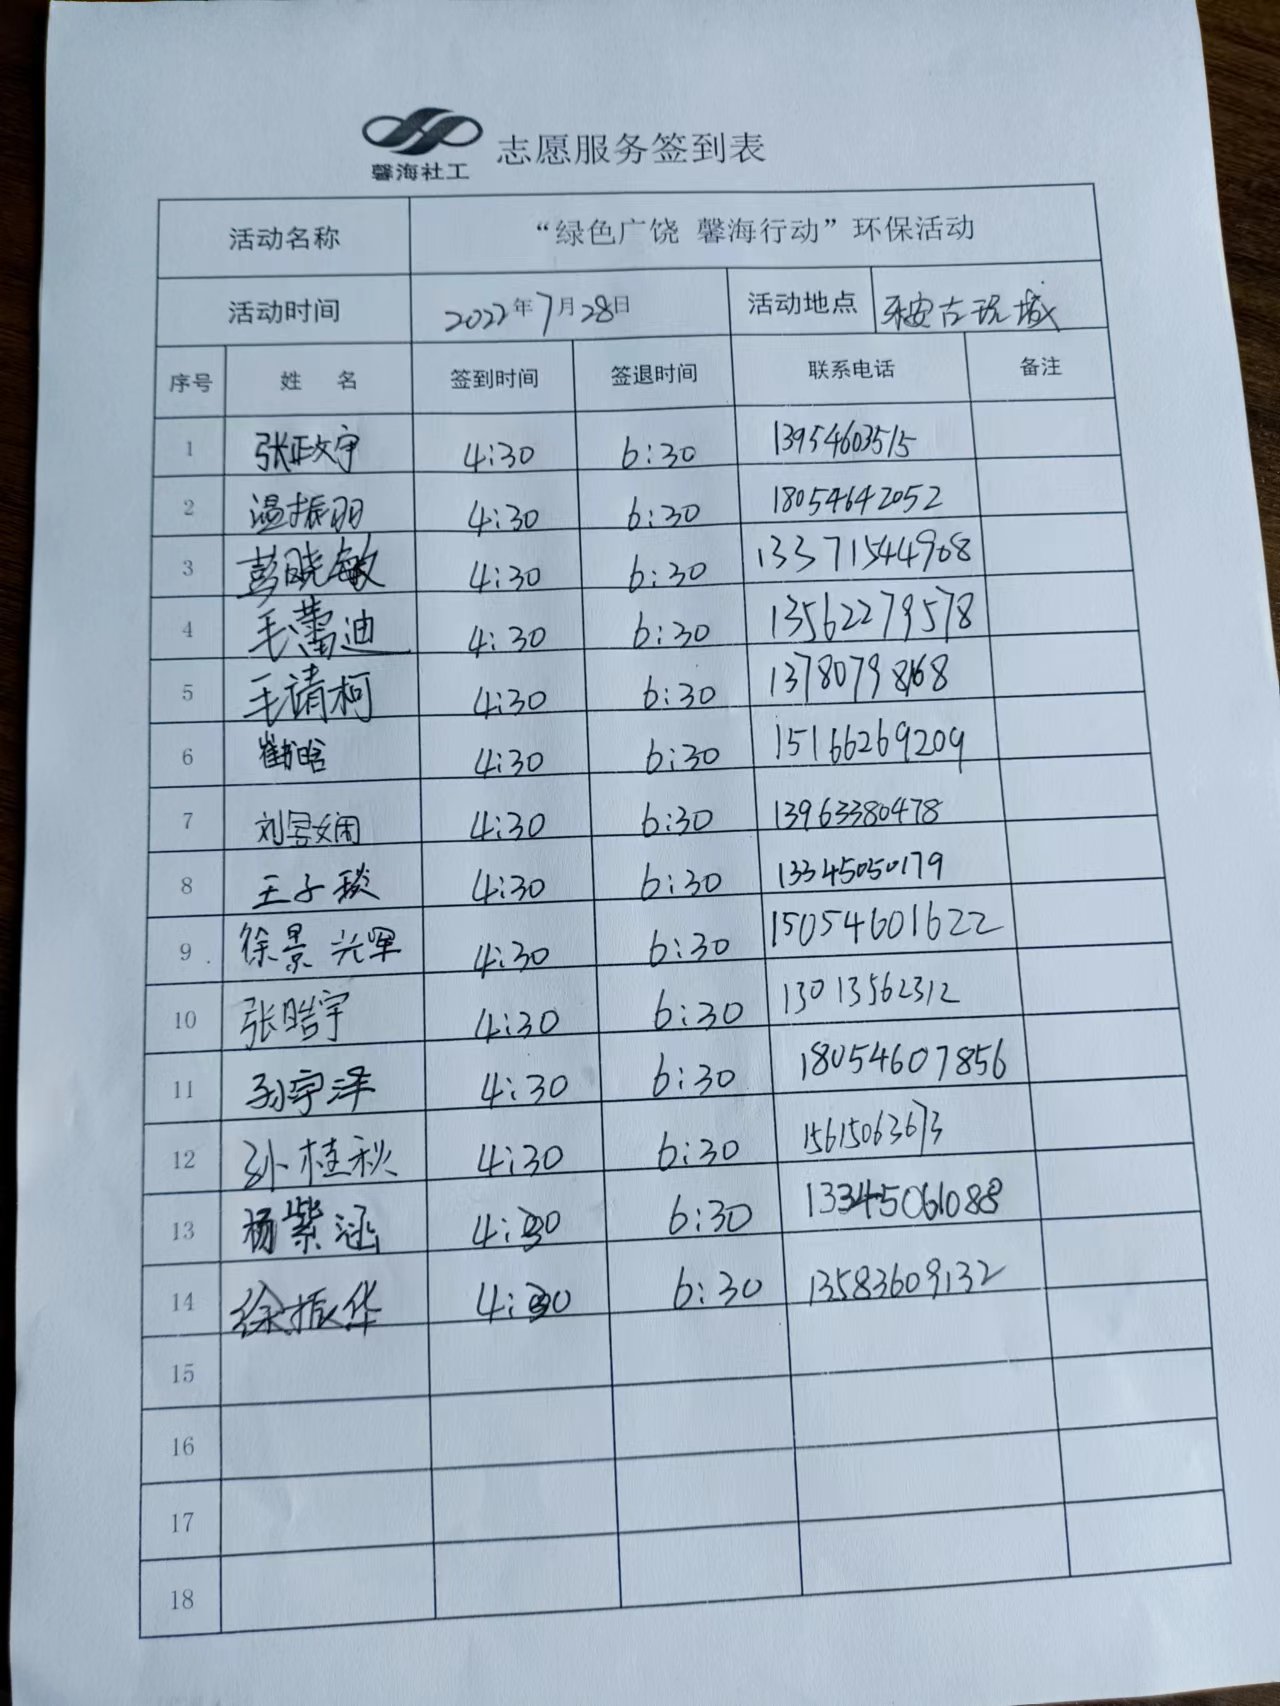 馨海社工 志愿服务签到表
活动名称 “绿色广饶 馨海行动”环保活动
活动时间 2022年7月28日 活动地点
序号 姓 名 签到时间 签退时间 联系电话 备注
1 张政宇 4:30 6:30 13954603515
2 温振羽 4:30 6:30 18054642052
3 彭晓敏 4:30 6:30 13371544908
4 毛蕾迪 4:30 6:30 13562279578
5 王清柯 4:30 6:30 13780798168
6 4:30 6:30 15166269209
7 4:30 6:30 13963380478
8 王子琰 4:30 6:30 13345050179
9 徐景辉 4:30 6:30 15054601622
10 张晧宇 4:30 6:30 13013562312
11 孙宇泽 4:30 6:30 18054607856
12 孙桂秋 4:30 6:30 15615063673
13 杨紫涵 4:30 6:30 13345061088
14 徐振华 4:30 6:30 13583609132
15
16
17
18